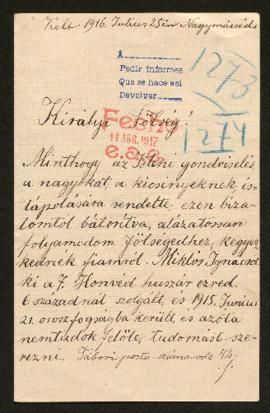 Kelt 1916. Julius 25én Nagymácséd
A
Pedir informes
Que se hace así
Devolver
1273
1274
Királyi Fölség
Fecho
11 ABR. 1917
Minthogy az Isteni gondviselés
a nagyokat, a kicsinyeknek, is-
tápolására rendelte, ezen biza-
lomtól bátorítva, alázatossan
folyamodom Fölségedhez, kegyes-
kednék fiamról. Miklos Ignácrol
ki a 7. Honvéd huszár ezred.
6 századnál szolgált, és 1915. Junius
21. orosz fogságba került és azóta
nemtudok felöle, tudomást sze-
rezni. Tábori posta száma volt 72.